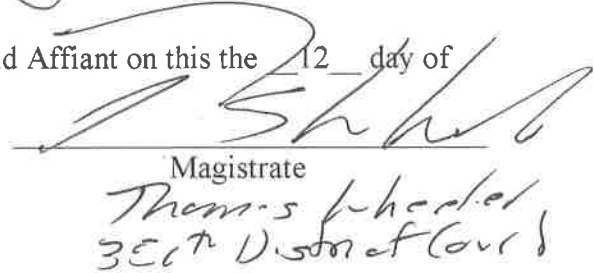 d Affiant on this the __12__ day of
Magistrate
Thomas Wheeler
District Court